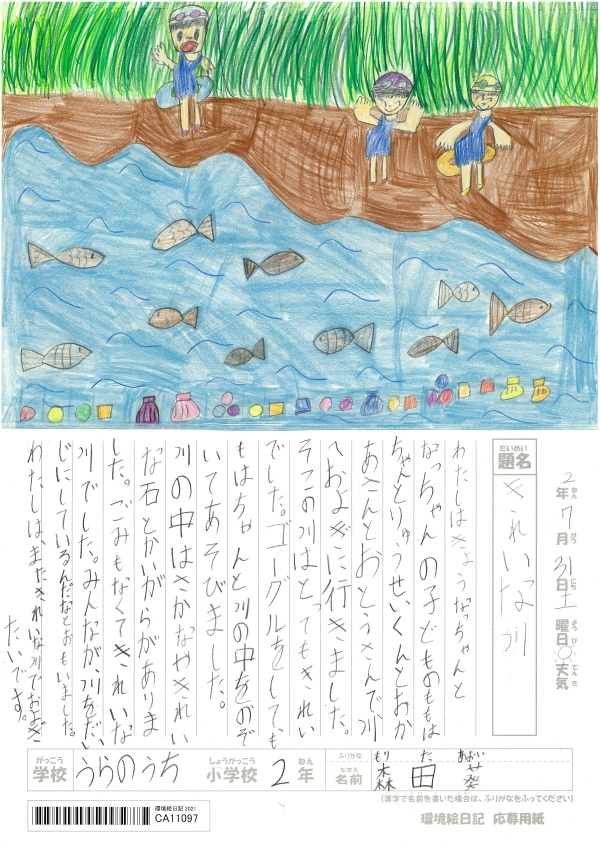 2年7月31日土曜日 天気
だいめい
題名
きれいな川
わたしはきょうなっちゃんと
なっちゃんの子どものももは
ちゃんとりゅうせいくんとおか
あさんとおとうさんで川
へおよぎに行きました。
そこの川はとってもきれい
でした。ゴーグルをしても
もはちゃんと川の中をのぞ
いてあそびました。
川の中はさかなやきれい
な石とかいがらがありま
した。ごみもなくてきれいな
川でした。みんなが、川をだい
じにしているんだなとおもいました。
わたしは、またきれいな川でおよぎ
たいです。
がっこう
学校
うらのうち
しょうがっこう
小学校
2
ねん
年
ふりがな
もり た あおい
なまえ
名前
森田葵
(漢字で名前を書いた場合は、ふりがなをふってください)
環境絵日記 2021
CA11097
環境絵日記 応募用紙